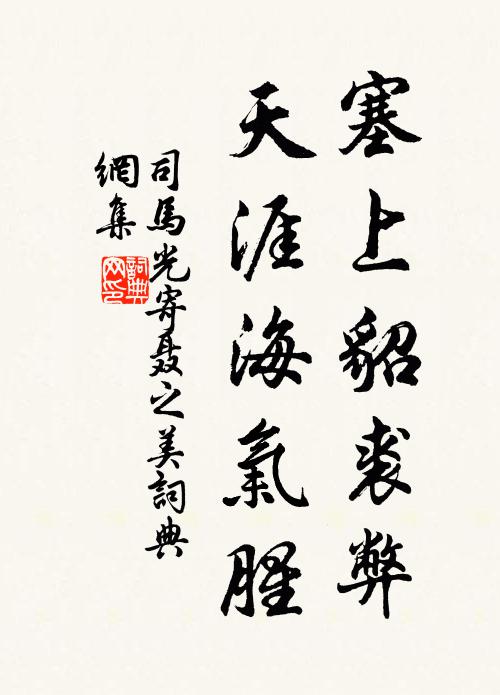 塞上貂裘弊
天涯海氣腥
司馬光寄聂之美詞典
網集
詞典
网印